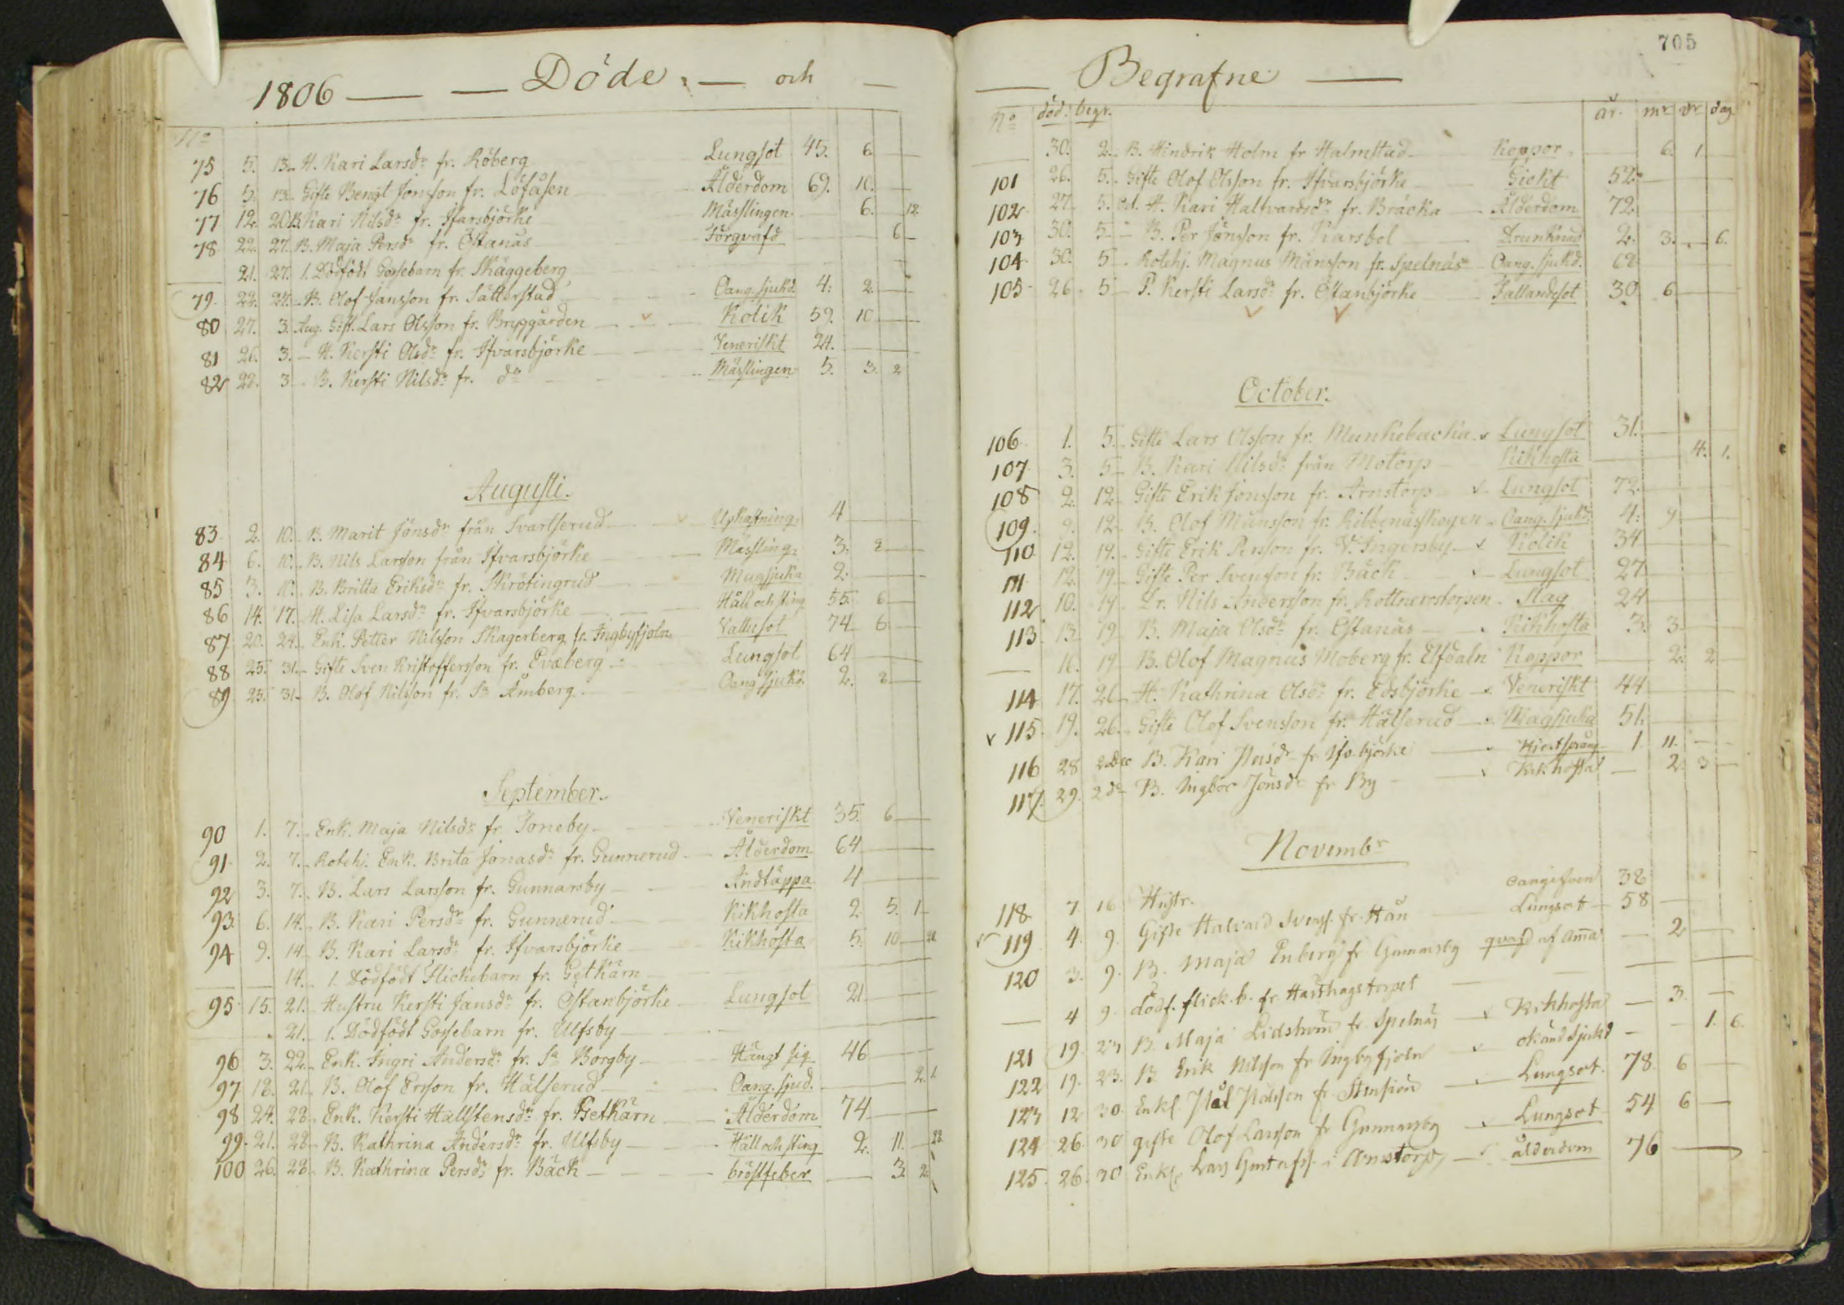 1806 — — Döde, — och —
No
75 5. 13. H. Kari Larsdr fr. Röberg Lungsot 45. 6.
76 5. 13. Gifte Bengt Jonsson fr. Löfåsen Ålderdom 69. 10.
77 12. 20. B. Kari Nilsdr fr. Ifvarsbjörke Mässlingen 6. 12
78 22. 27. B. Maja Persdr fr. Östanås 6
21. 27. 1. Dödfödt Gossebarn fr. Skäggeberg
79. 22. 27. B. Olof Jansson fr. Sätterstad Oang. sjukd. 4. 2.
80 27. 3. Aug. Gift. Lars Olsson fr. Bryggården Kolik 59. 10
81 26. 3. H. Kersti Olsdr fr. Ifvarsbjörke Veneriskt 24.
82 28. 3. B. Kersti Nilsdr fr. do Mässlingen 5. 3. 2
Augusti.
83. 2. 10. B. Marit Jönsdr från Svartserud Upkastning 4
84 6. 10. B. Nils Larsson från Ifvarsbjörke Mässling. 3. 2
85 3. 10. B. Britta Eriksdr fr. Skrötingrud Magsjuka 2.
86 14. 17. H. Lisa Larsdr fr. Ifvarsbjörke Håll och sting 55. 6
87 20. 24. Enk. Petter Nilsson Skagerberg fr. Ingbyfjoln Vattusot 74. 6.
88 25. 31. Gifte Sven Kristoffersson fr. Evaberg Lungsot 64
89 25. 31. B. Olof Nilsson fr. Sr Åmberg Oang. sjukd. 2. 8
September.
90 1. 7. Enk. Maja Nilsdr fr. Toneby Veneriskt 35. 6
91. 2. 7. Rotehj. Enk. Brita Jonasdr fr. Gunnerud Ålderdom 64
92 3. 7. B. Lars Larsson fr. Gunnarsby Andtäppa 4
93 6. 14. B. Kari Persdr fr. Gunnerud Kikhosta 2. 5. 1
94 9. 14 B. Kari Larsdr fr. Ifvarsbjörke Kikhosta 5. 10
14. 1. Dödfödt Flickebarn fr. Getkärn
95 15. 21. Hustru Kersti Jansdr fr. Östanbjörke Lungsot 21
21. 1. Dödfödt Gossebarn fr. Ulfsby
96 3. 22. Enk. Ingri Andersdr fr. Sr Borgby Hängt sig 46
97 18. 21. B. Olof Ersson fr. Hälserud Oang. sjud. 2. 1
98 24. 28. Enk. Kersti Hallstensdr fr. Getkärn Ålderdom 74
99. 21. 28. B. Kathrina Andersdr fr. Ulfsby Håll och sting 2. 11. 23
100 26. 28. B. Kathrina Persdr fr. Bäck bröstfeber 3. 2
705
— Begrafne —
No död: begr. år. mr vr dag
30. 2. B. Hindrik Holm fr Halmstad Koppor 6. 1
101 26. 5. Gifte Olof Olsson fr. Ifvarsbjörke Giekt 52.
102 27. 5. H. Kari Hallvardsdr fr. Bråcka Ålderdom 72
103 30. 5. B. Per Jönsson fr. Karsbol Drunknad 2. 3. 6.
104 30. 5. Rotehj. Magnus Månsson fr. Spelnäs Oang. sjukd. 62
105 26. 5. P. Kersti Larsdr fr. Östanbjörke Fallandesot 30 6
October.
106 1. 5. Gifte Lars Olsson fr. Munkebacka Lungsot 31.
107 3. 5. B. Kari Nilsdr från Motorp Kikhosta 4. 1.
108 2. 12. Gifte Erik Jonsson fr. Arnstorp Lungsot 72
109. 9. 12. B. Olof Månsson fr. Ribbenässkogen Oang. sjukd. 4. 9
110 12. 19. Gifte Erik Persson fr. V. Ingersby Kolik 34
111 12. 19 Gifte Per Svensson fr. Bäck Lungsot 27
112 10. 19 Dr. Nils Andersson fr. Rottnerostorpen Slag 24
113 13. 19 B. Maja Olsdr fr. Östanås Kikhosta 3. 3
— 16. 19 B. Olof Magnus Moberg fr. Elfdaln Koppor 2. 2
114 17. 26 H. Kathrina Olsdr fr. Edsbjörke Veneriskt 44
115. 19. 26. Gifte Olof Svensson fr. Hälserud Magsjuka 51.
116 28 2 B. Kari fr Ifv.bjørke 1. 11.
117. 29. 2 do B. Ingbor Jönsdr fr By Kikhosta 2 3
Novembr
118. 7 16 Hustr. oangifven 38
119 4. 9. Gifte Halvard Svenss. fr. Hån Lungsot 58
120 3. 9. B. Maja Enberg fr Gunnarsby qvafd af amma 2
4 9. dödf. flick.b. fr.
121 19. 23 B. Maja Lidström fr Spelnäs Kikhosta 3
122 19. 23. B. Erik Nilsson fr Ingbyfjoln okänd sjukd 1. 6.
123 12 30 Enkl. Lungsot. 78. 6
124 26 30 gifte Olof Larsson fr Gunnarsby Lungsot 54 6
125. 26. 30 Enkl. Lars Gustafss. i Arnstorp ålderdom 76